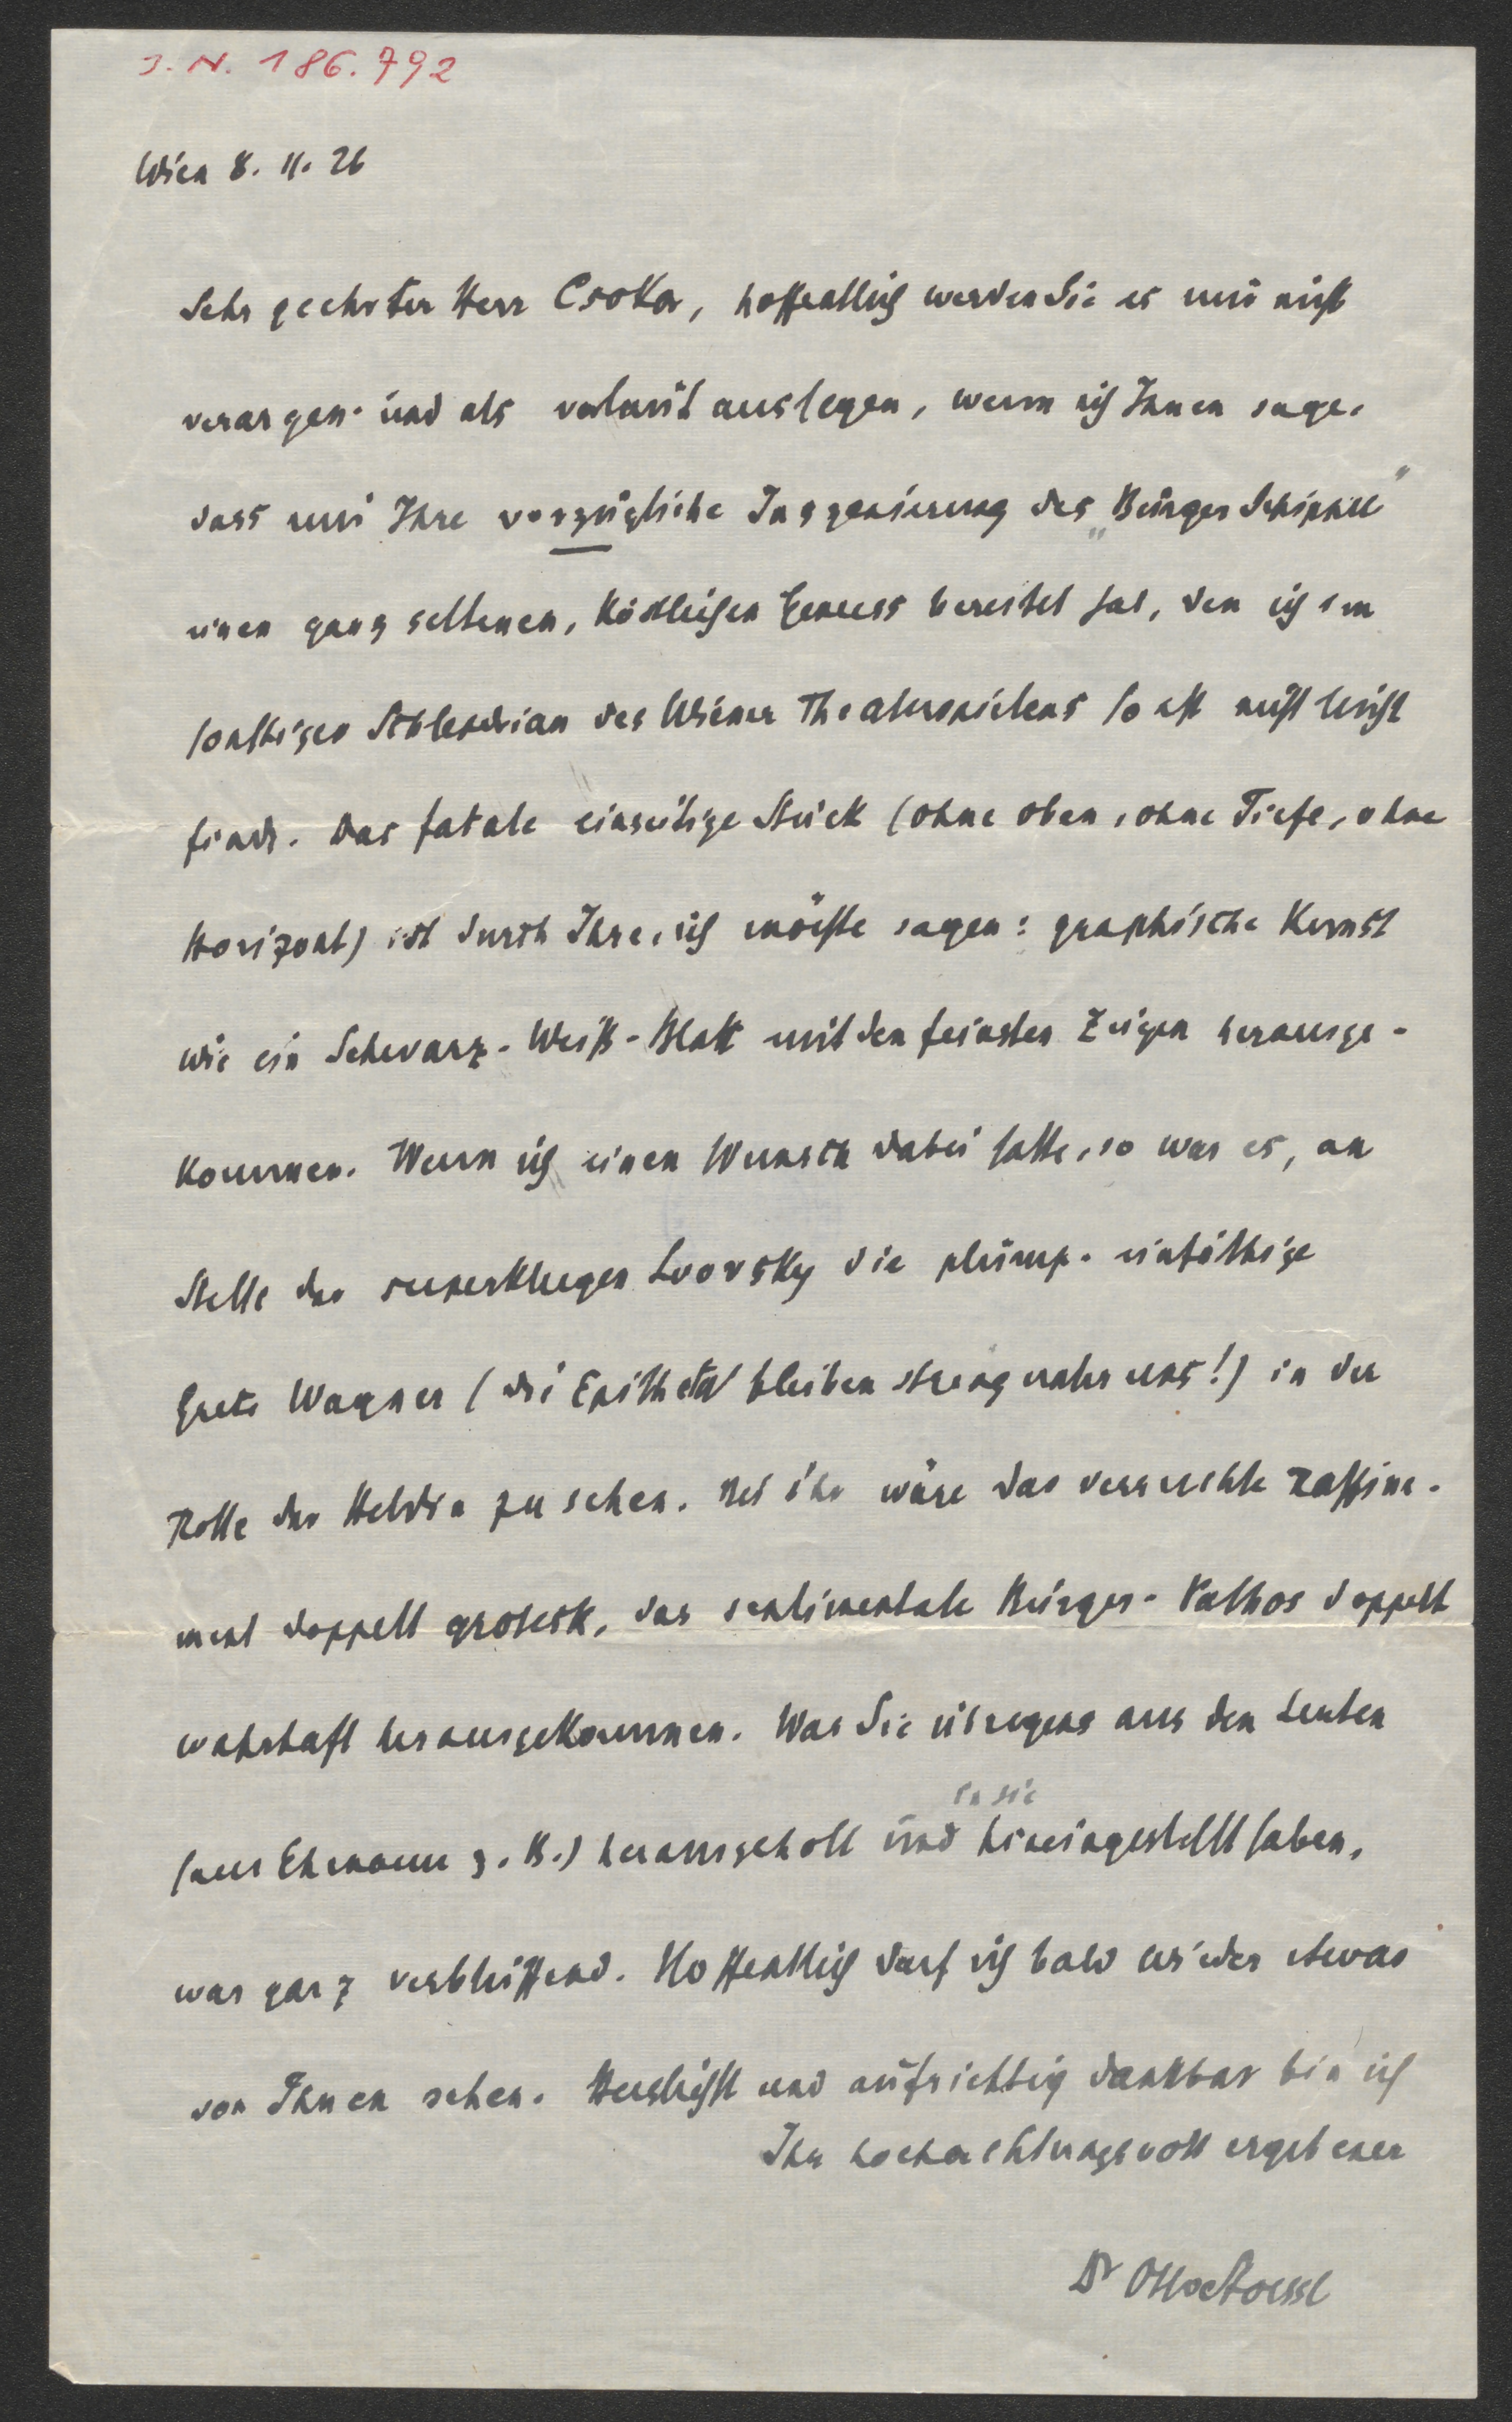 I. N. 186.792
Wien 8. 11. 26
Sehr geehrter Herr Csokor, hoffentlich werden Sie es mir nicht
verargen und als vorlaut auslegen, wenn ich Ihnen sage,
dass mir Ihre vorzügliche Inszenierung des „Bürger Schippel"
einen ganz seltenen, köstlichen Genuss bereitet hat, den ich im
sonstigen Schlendrian des Wiener Theaterspielens so oft nicht leicht
finde. Das fatale einseitige Stück (ohne oben, ohne Tiefe, ohne
Horizont) ist durch Ihre, ich möchte sagen: graphische Kunst
wie ein Schwarz-Weiß-Blatt mit den feinsten Zügen herausge-
kommen. Wenn ich einen Wunsch dabei hatte, so war es, an
Stelle der superklugen Lvovsky die plump-einfältige
Grete Wagner (die Epitheta bleiben streng unter uns!) in der
Rolle der Heldin zu sehen. Bei ihr wäre das verruchte Raffine-
ment doppelt grotesk, das sentimentale Bürger-Pathos doppelt
wahrhaft herausgekommen. Was Sie übrigens aus den Leuten
in sie
(aus Ehmann z. B.) herausgeholt und hineingestellt haben,
war ganz verblüffend. Hoffentlich darf ich bald wieder etwas
von Ihnen sehen. Herzlichst und aufrichtig dankbar bin ich
Ihr hochachtungsvoll ergebener
Dr Otto Stoessl